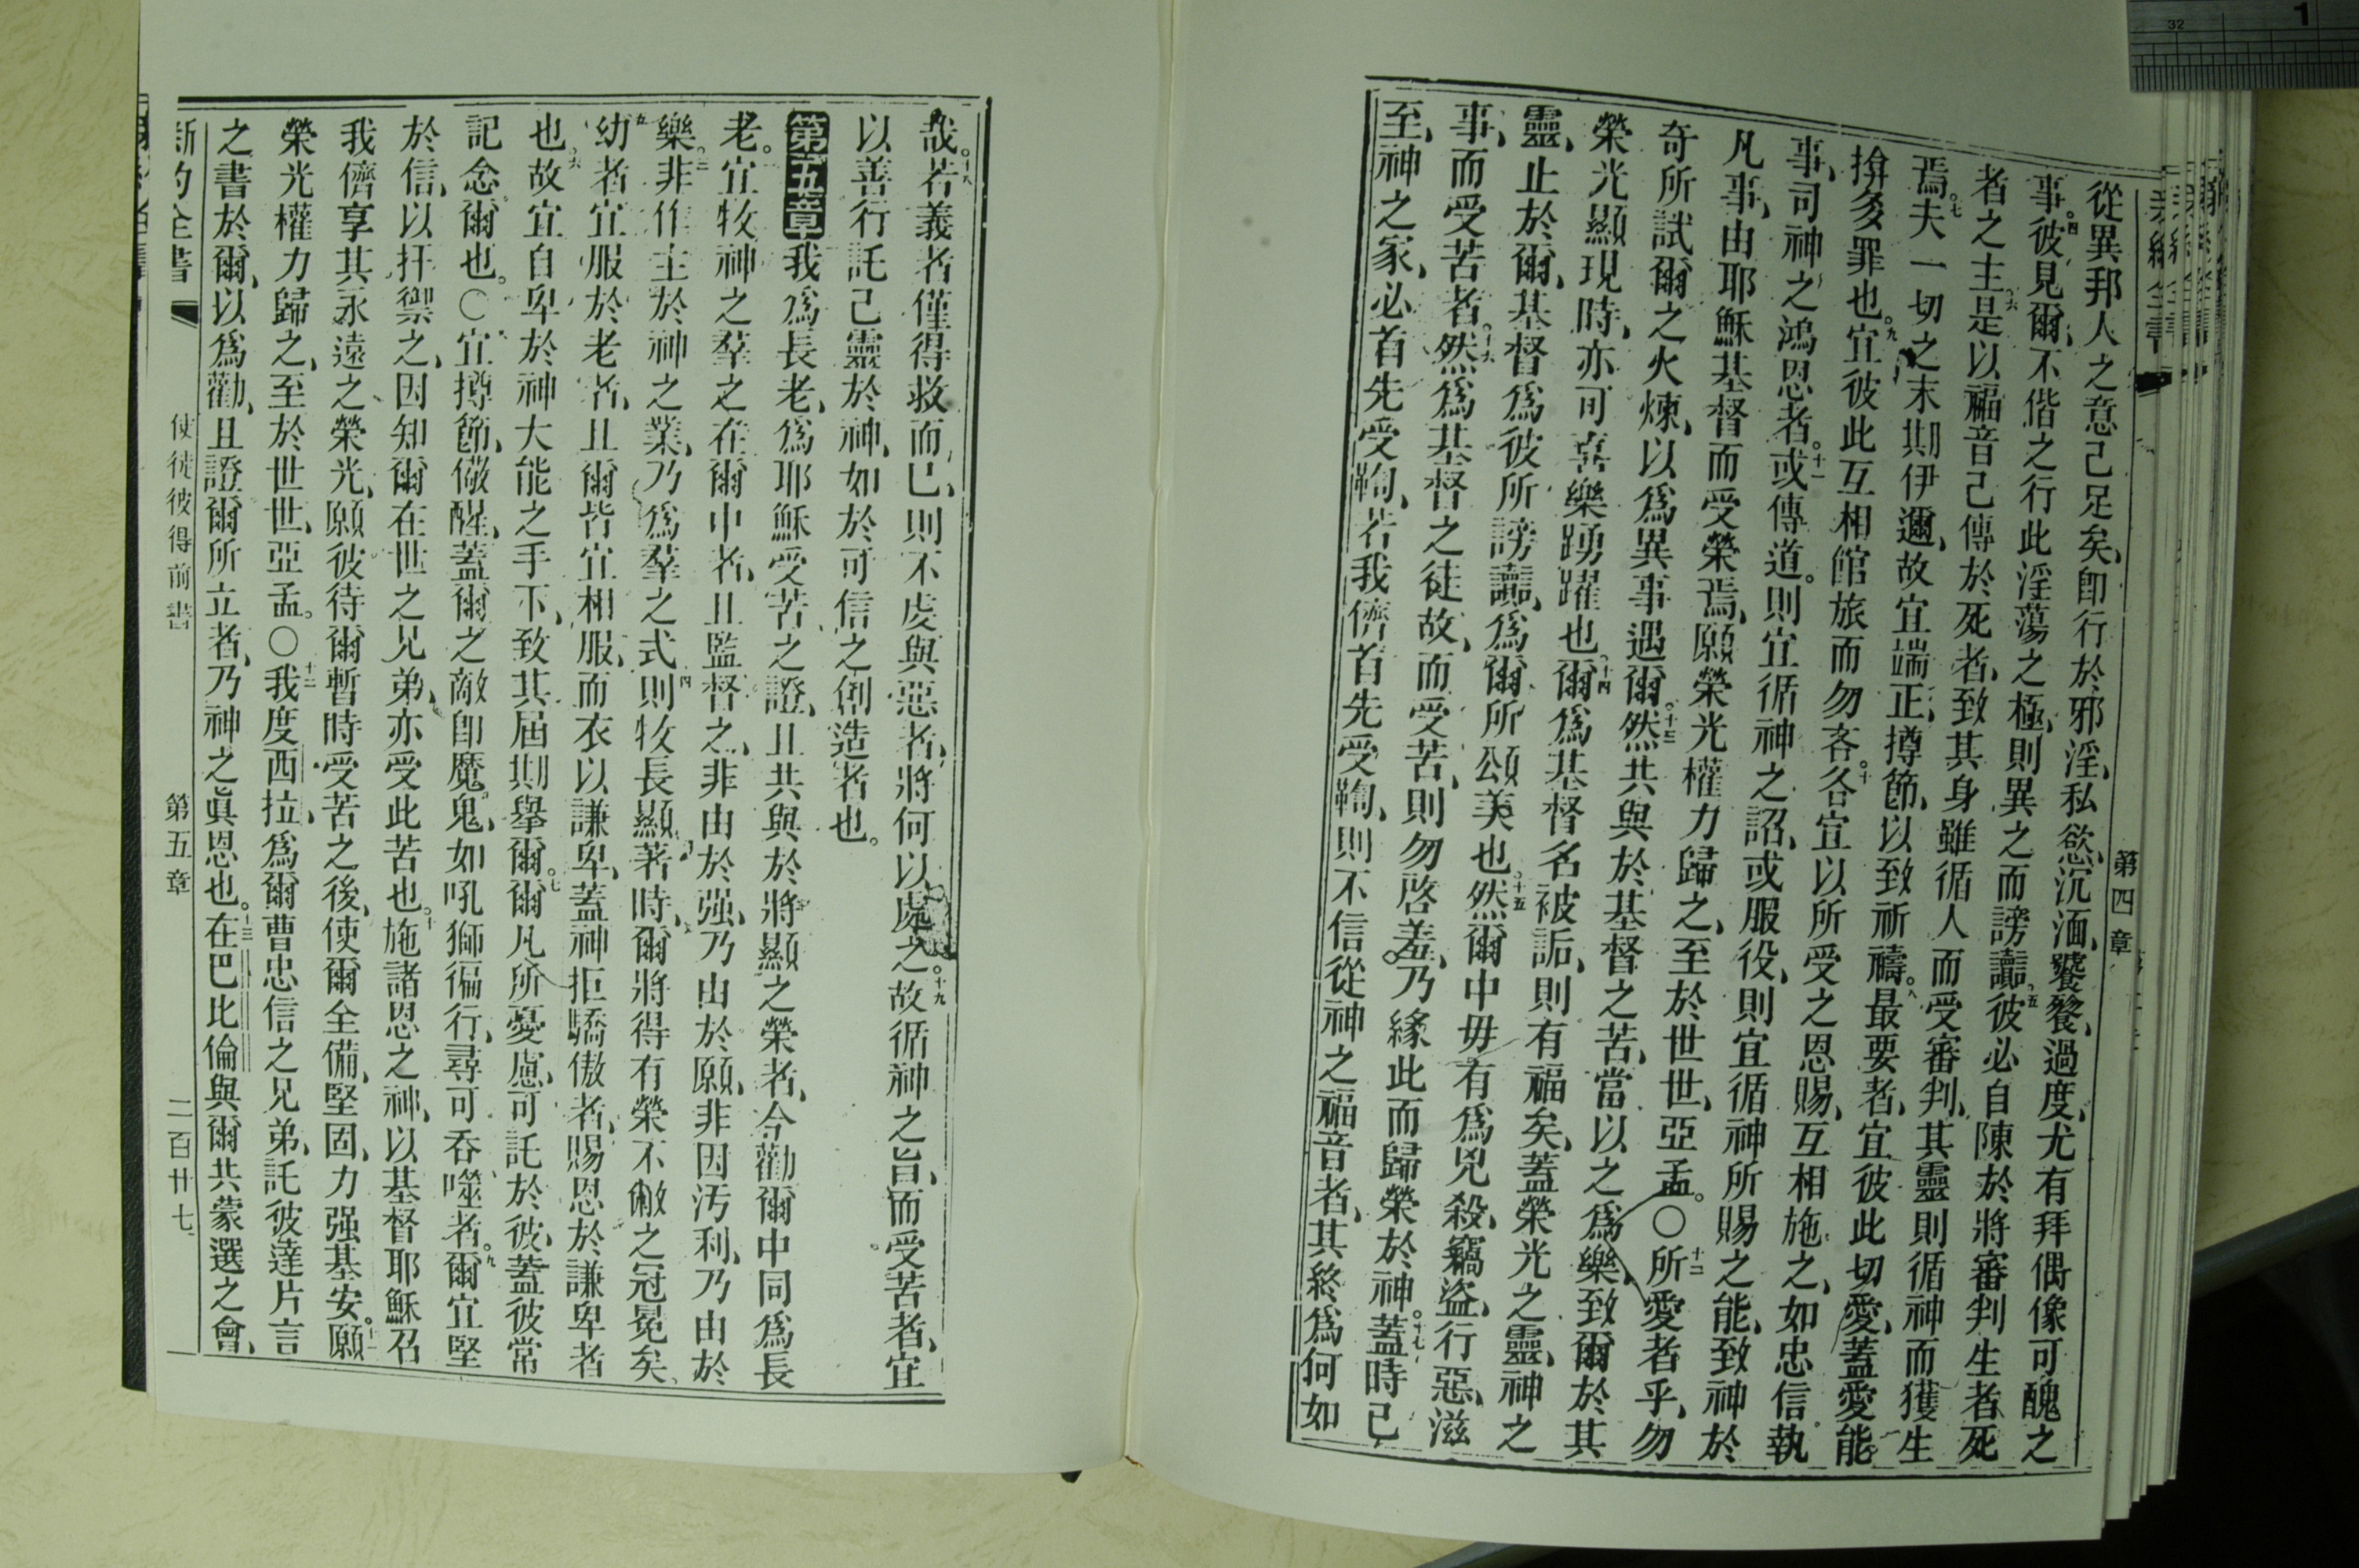 第四章
從異邦人之意己足矣、卽行於邪淫、私慾、沉湎、饕餮、過度、尤有拜偶像可醜之
事。四彼見爾、不偕之行此淫蕩之極、則異之而謗讟。五彼必自陳於將審判生者死
者之主。六是以福音己傳於死者、致其身雖循人而受審判、其靈則循神而獲生
焉。七夫一切之末期伊邇、故宜端正、撙節、以致祈禱。八最要者、宜彼此切愛、蓋愛能
揜多罪也。九宜彼此互相館旅而勿吝。十各宜以所受之恩賜、互相施之、如忠信執
事、司神之鴻恩者。十一或傳道。則宜循神之詔、或服役、則宜循神所賜之能、致神於
凡事、由耶穌基督而受榮焉、願榮光權力歸之、至於世世、亞孟。〇十二所愛者乎、勿
奇所試爾之火煉、以爲異事遇爾。十三然共與於基督之苦、當以之爲樂、致爾於其
榮光顯現時、亦可喜樂踴躍也。十四爾爲基督名被詬、則有福矣、蓋榮光之靈、神之
靈、止於爾、基督爲彼所謗讟、爲爾所頌美也。十五然爾中毋有爲兇殺、竊盜、行惡、滋
事、而受苦者。十六然爲基督之徒故、而受苦、則勿啓羞、乃緣此而歸榮於神。十七蓋時已
至、神之家、必首先受鞫、若我儕首先受鞫、則不信從神之福音者、其終爲何如
哉。十八若義者僅得救而已、則不虔與惡者、將何以處之。十九故循神之旨、而受苦者、宜
以善行託己靈於神、如於可信之創造者也。
第五章我爲長老、爲耶穌受苦之證、且共與於將顯之榮者、今勸爾中同爲長
老。二宜牧神之羣之在爾中者、且監督之、非由於强、乃由於願、非因汚利、乃由於
樂。三非作主於神之業、乃爲羣之式。四則牧長顯著時、爾將得有榮不敝之冠冕矣、
五幼者宜服於老者、且爾皆宜相服、而衣以謙卑、蓋神拒驕傲者、賜恩於謙卑者
也。六故宜自卑於神大能之手下、致其屆期舉爾。七爾凡所憂慮、可託於彼、蓋彼常
記念爾也。〇宜撙節、儆醒、蓋爾之敵卽魔鬼、如吼獅徧行、尋可吞噬者。九爾宜堅
於信、以扞禦之、因知爾在世之兄弟、亦受此苦也。十施諸恩之神、以基督耶穌召
我儕享其永遠之榮光、願彼待爾暫時受苦之後、使爾全備、堅固、力强基安。十一願
榮光權力歸之、至於世世、亞孟。〇十二我度西拉、爲爾曹忠信之兄弟、託彼達片言
之書於爾、以爲勸、且證爾所立者、乃神之眞恩也。十三在巴比倫與爾共蒙選之會、
新約全書 使徒彼得前書 第五章 二百廿七